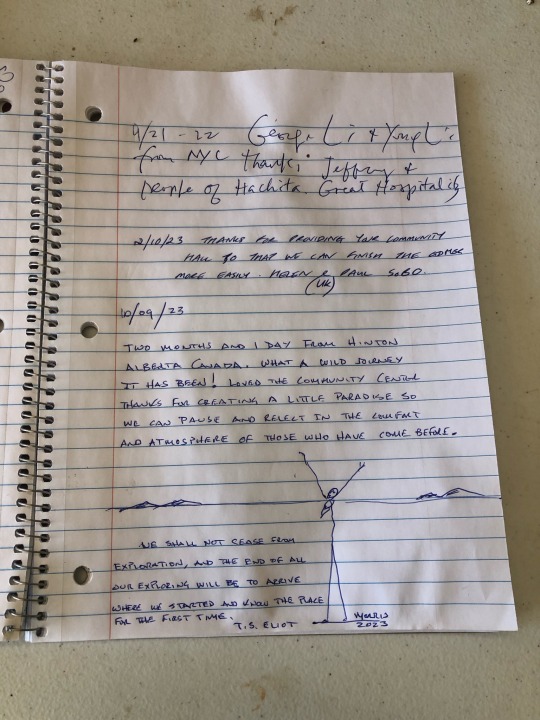 9/21-22 George Li & Yong Li
from NYC thanks, Jeffrey &
people of Hachita. Great Hospitality
2/10/23 THANKS FOR PROVIDING YOUR COMMUNITY
HALL SO THAT WE CAN FINISH THE
MORE EASILY. HELEN & PAUL SOBO.
(UK)
10/09/23
TWO MONTHS AND 1 DAY FROM HINTON
ALBERTA CANADA. WHAT A WILD JOURNEY
IT HAS BEEN! LOVED THE COMMUNITY CENTRE
THANKS FOR CREATING A LITTLE PARADISE SO
WE CAN PAUSE AND RELECT IN THE COMFORT
AND ATMOSPHERE OF THOSE WHO HAVE COME BEFORE.
WE SHALL NOT CEASE FROM
EXPLORATION, AND THE END OF ALL
OUR EXPLORING WILL BE TO ARRIVE
WHERE WE STARTED AND KNOW THE PLACE
FOR THE FIRST TIME.
T.S. ELIOT
2023